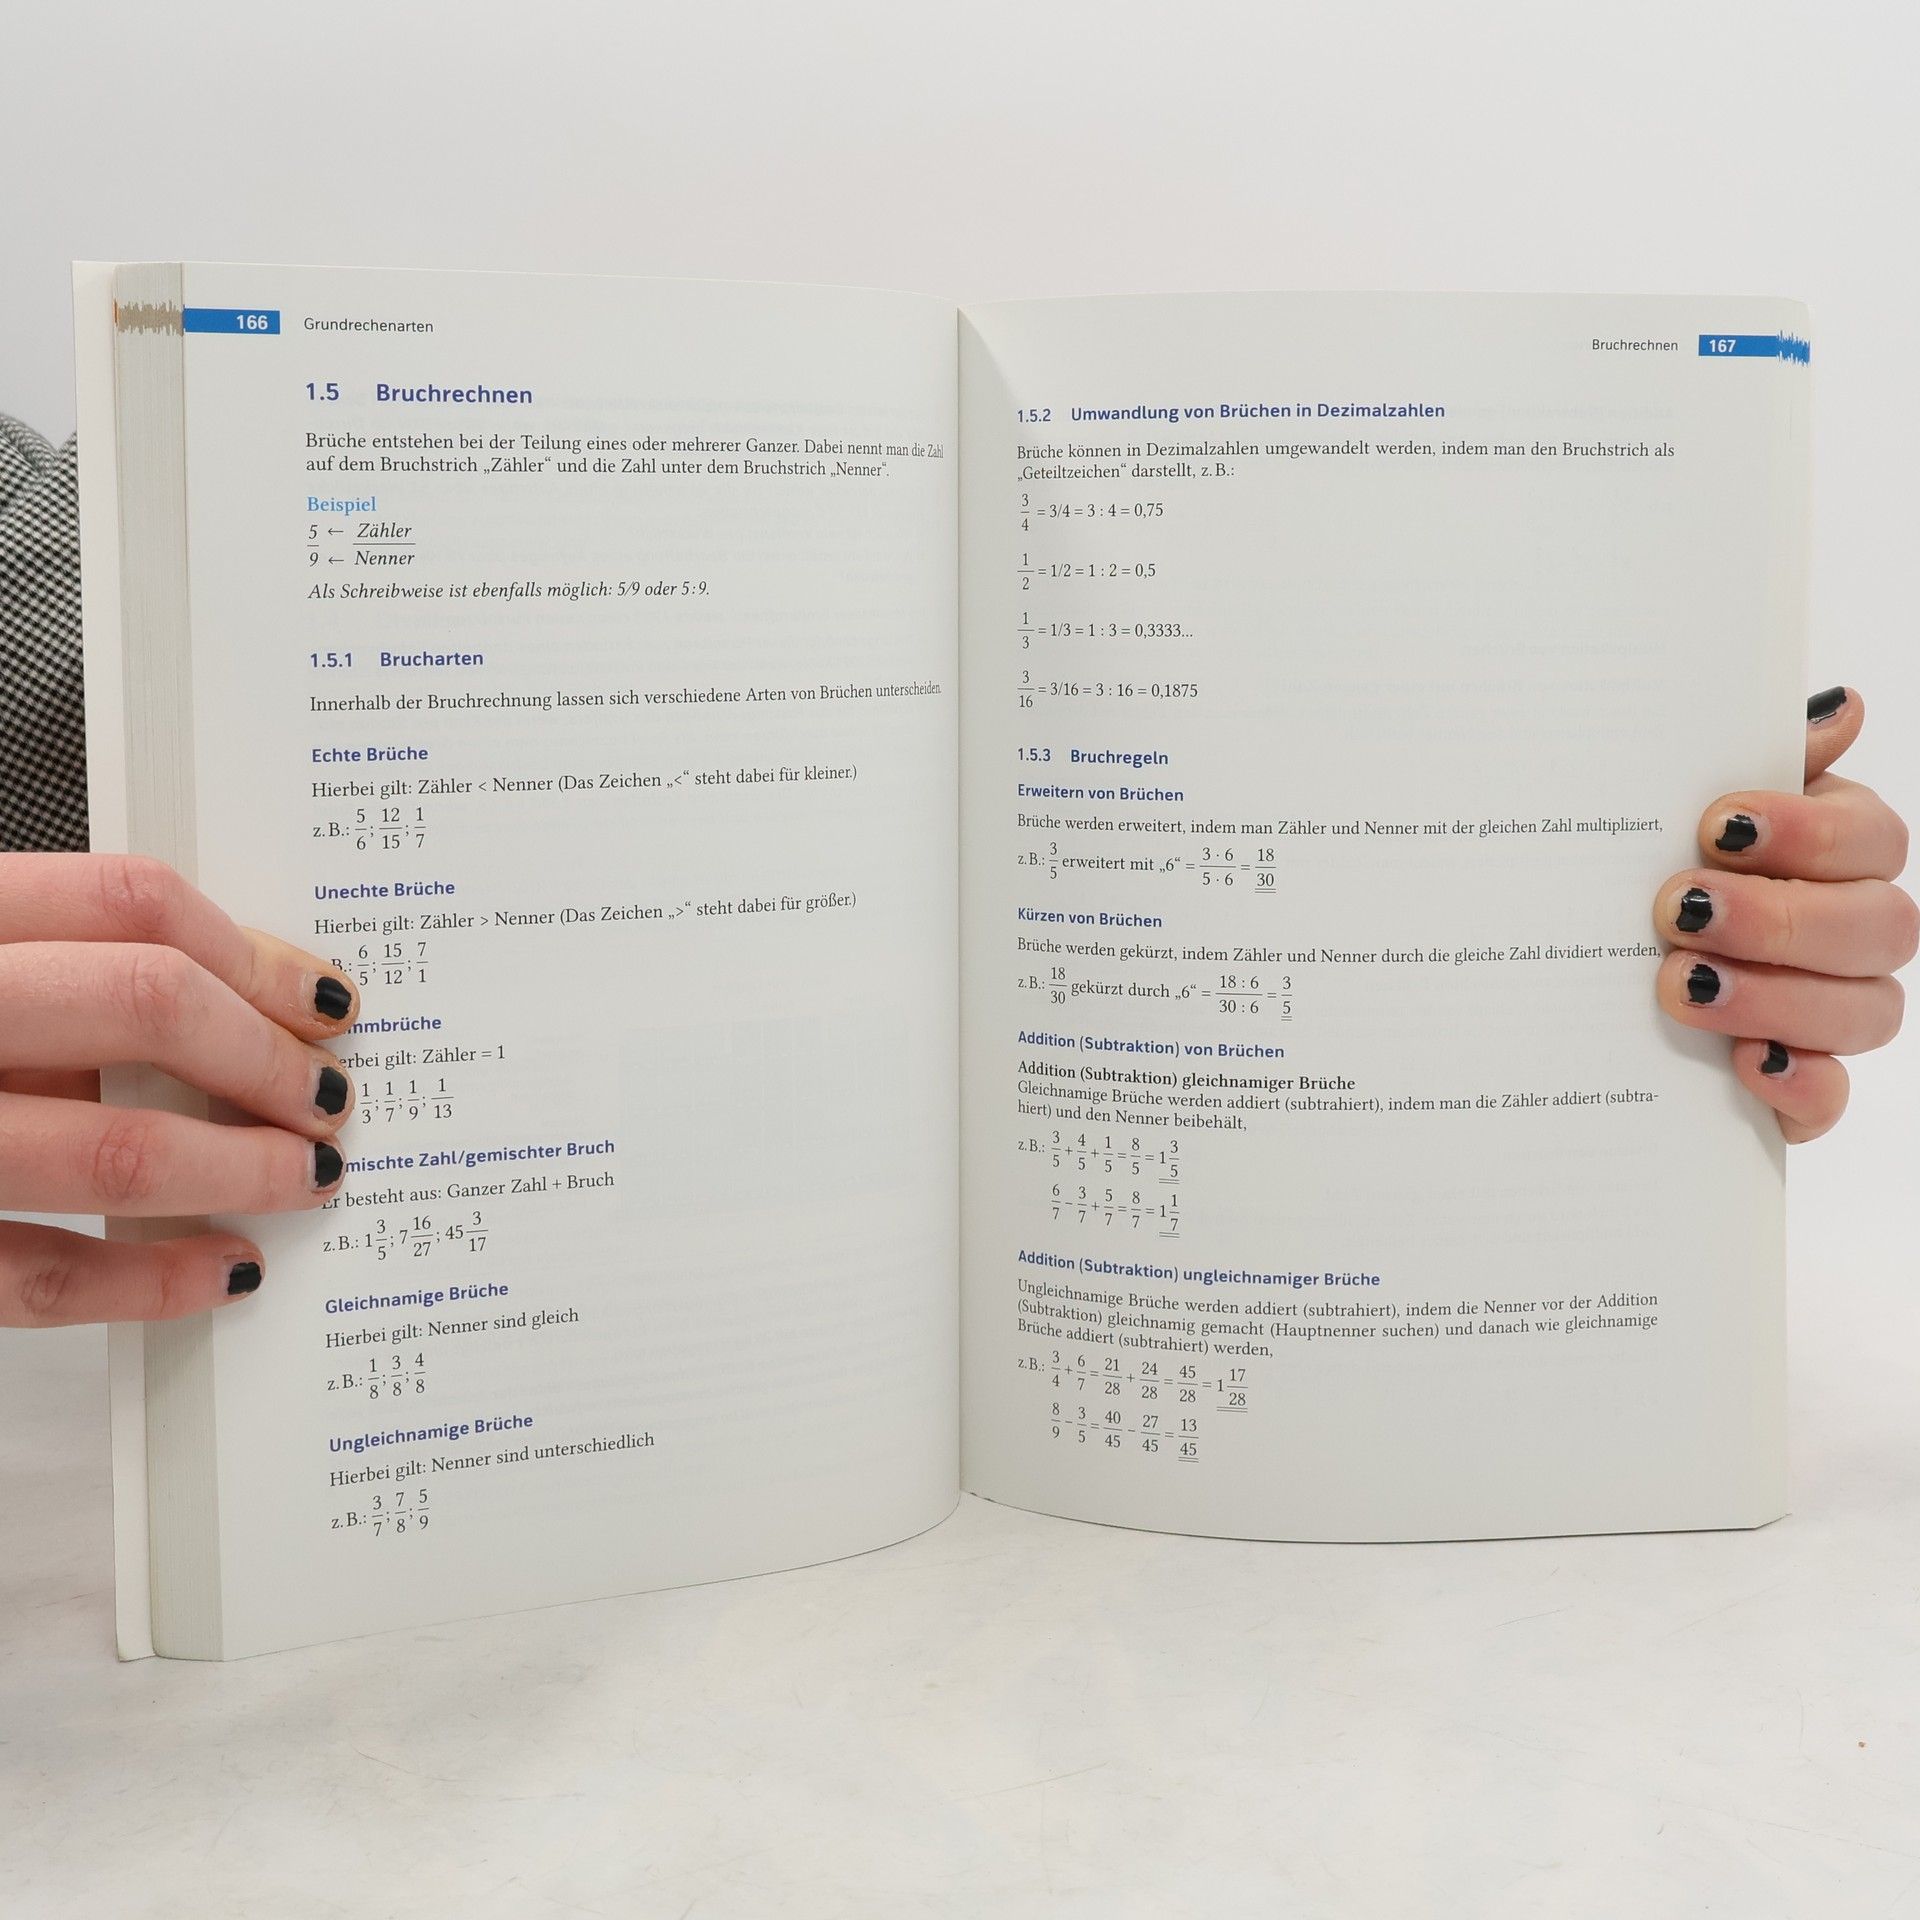 166 Grundrechenarten
1.5 Bruchrechnen
Brüche entstehen bei der Teilung eines oder mehrerer Ganzer. Dabei nennt man die Zahl
auf dem Bruchstrich „Zähler“ und die Zahl unter dem Bruchstrich „Nenner“.
Beispiel
5 ← Zähler
9 ← Nenner
Als Schreibweise ist ebenfalls möglich: 5/9 oder 5:9.
1.5.1 Brucharten
Innerhalb der Bruchrechnung lassen sich verschiedene Arten von Brüchen unterscheiden.
Echte Brüche
Hierbei gilt: Zähler < Nenner (Das Zeichen „<“ steht dabei für kleiner.)
z. B.: 5/6; 12/15; 1/7
Unechte Brüche
Hierbei gilt: Zähler > Nenner (Das Zeichen „>“ steht dabei für größer.)
B.: 6/5; 15/12; 7/1
mmbrüche
erbei gilt: Zähler = 1
1/3; 1/7; 1/9; 1/13
mischte Zahl/gemischter Bruch
Er besteht aus: Ganzer Zahl + Bruch
z. B.: 1 3/5; 7 16/27; 45 3/17
Gleichnamige Brüche
Hierbei gilt: Nenner sind gleich
z. B.: 1/8; 3/8; 4/8
Ungleichnamige Brüche
Hierbei gilt: Nenner sind unterschiedlich
z. B.: 3/7; 7/8; 5/9
Bruchrechnen 167
1.5.2 Umwandlung von Brüchen in Dezimalzahlen
Brüche können in Dezimalzahlen umgewandelt werden, indem man den Bruchstrich als
„Geteiltzeichen“ darstellt, z. B.:
3/4 = 3/4 = 3 : 4 = 0,75
1/2 = 1/2 = 1 : 2 = 0,5
1/3 = 1/3 = 1 : 3 = 0,3333...
3/16 = 3/16 = 3 : 16 = 0,1875
1.5.3 Bruchregeln
Erweitern von Brüchen
Brüche werden erweitert, indem man Zähler und Nenner mit der gleichen Zahl multipliziert,
z. B.: 3/5 erweitert mit „6“ = 3 · 6/5 · 6 = 18/30
Kürzen von Brüchen
Brüche werden gekürzt, indem Zähler und Nenner durch die gleiche Zahl dividiert werden,
z. B.: 18/30 gekürzt durch „6“ = 18 : 6/30 : 6 = 3/5
Addition (Subtraktion) von Brüchen
Addition (Subtraktion) gleichnamiger Brüche
Gleichnamige Brüche werden addiert (subtrahiert), indem man die Zähler addiert (subtra-
hiert) und den Nenner beibehält,
z. B.: 3/5 + 4/5 + 1/5 = 8/5 = 1 3/5
6/7 - 3/7 + 5/7 = 8/7 = 1 1/7
Addition (Subtraktion) ungleichnamiger Brüche
Ungleichnamige Brüche werden addiert (subtrahiert), indem die Nenner vor der Addition
(Subtraktion) gleichnamig gemacht (Hauptnenner suchen) und danach wie gleichnamige
Brüche addiert (subtrahiert) werden,
z. B.: 3/4 + 6/7 = 21/28 + 24/28 = 45/28 = 1 17/28
8/9 - 3/5 = 40/45 - 27/45 = 13/45